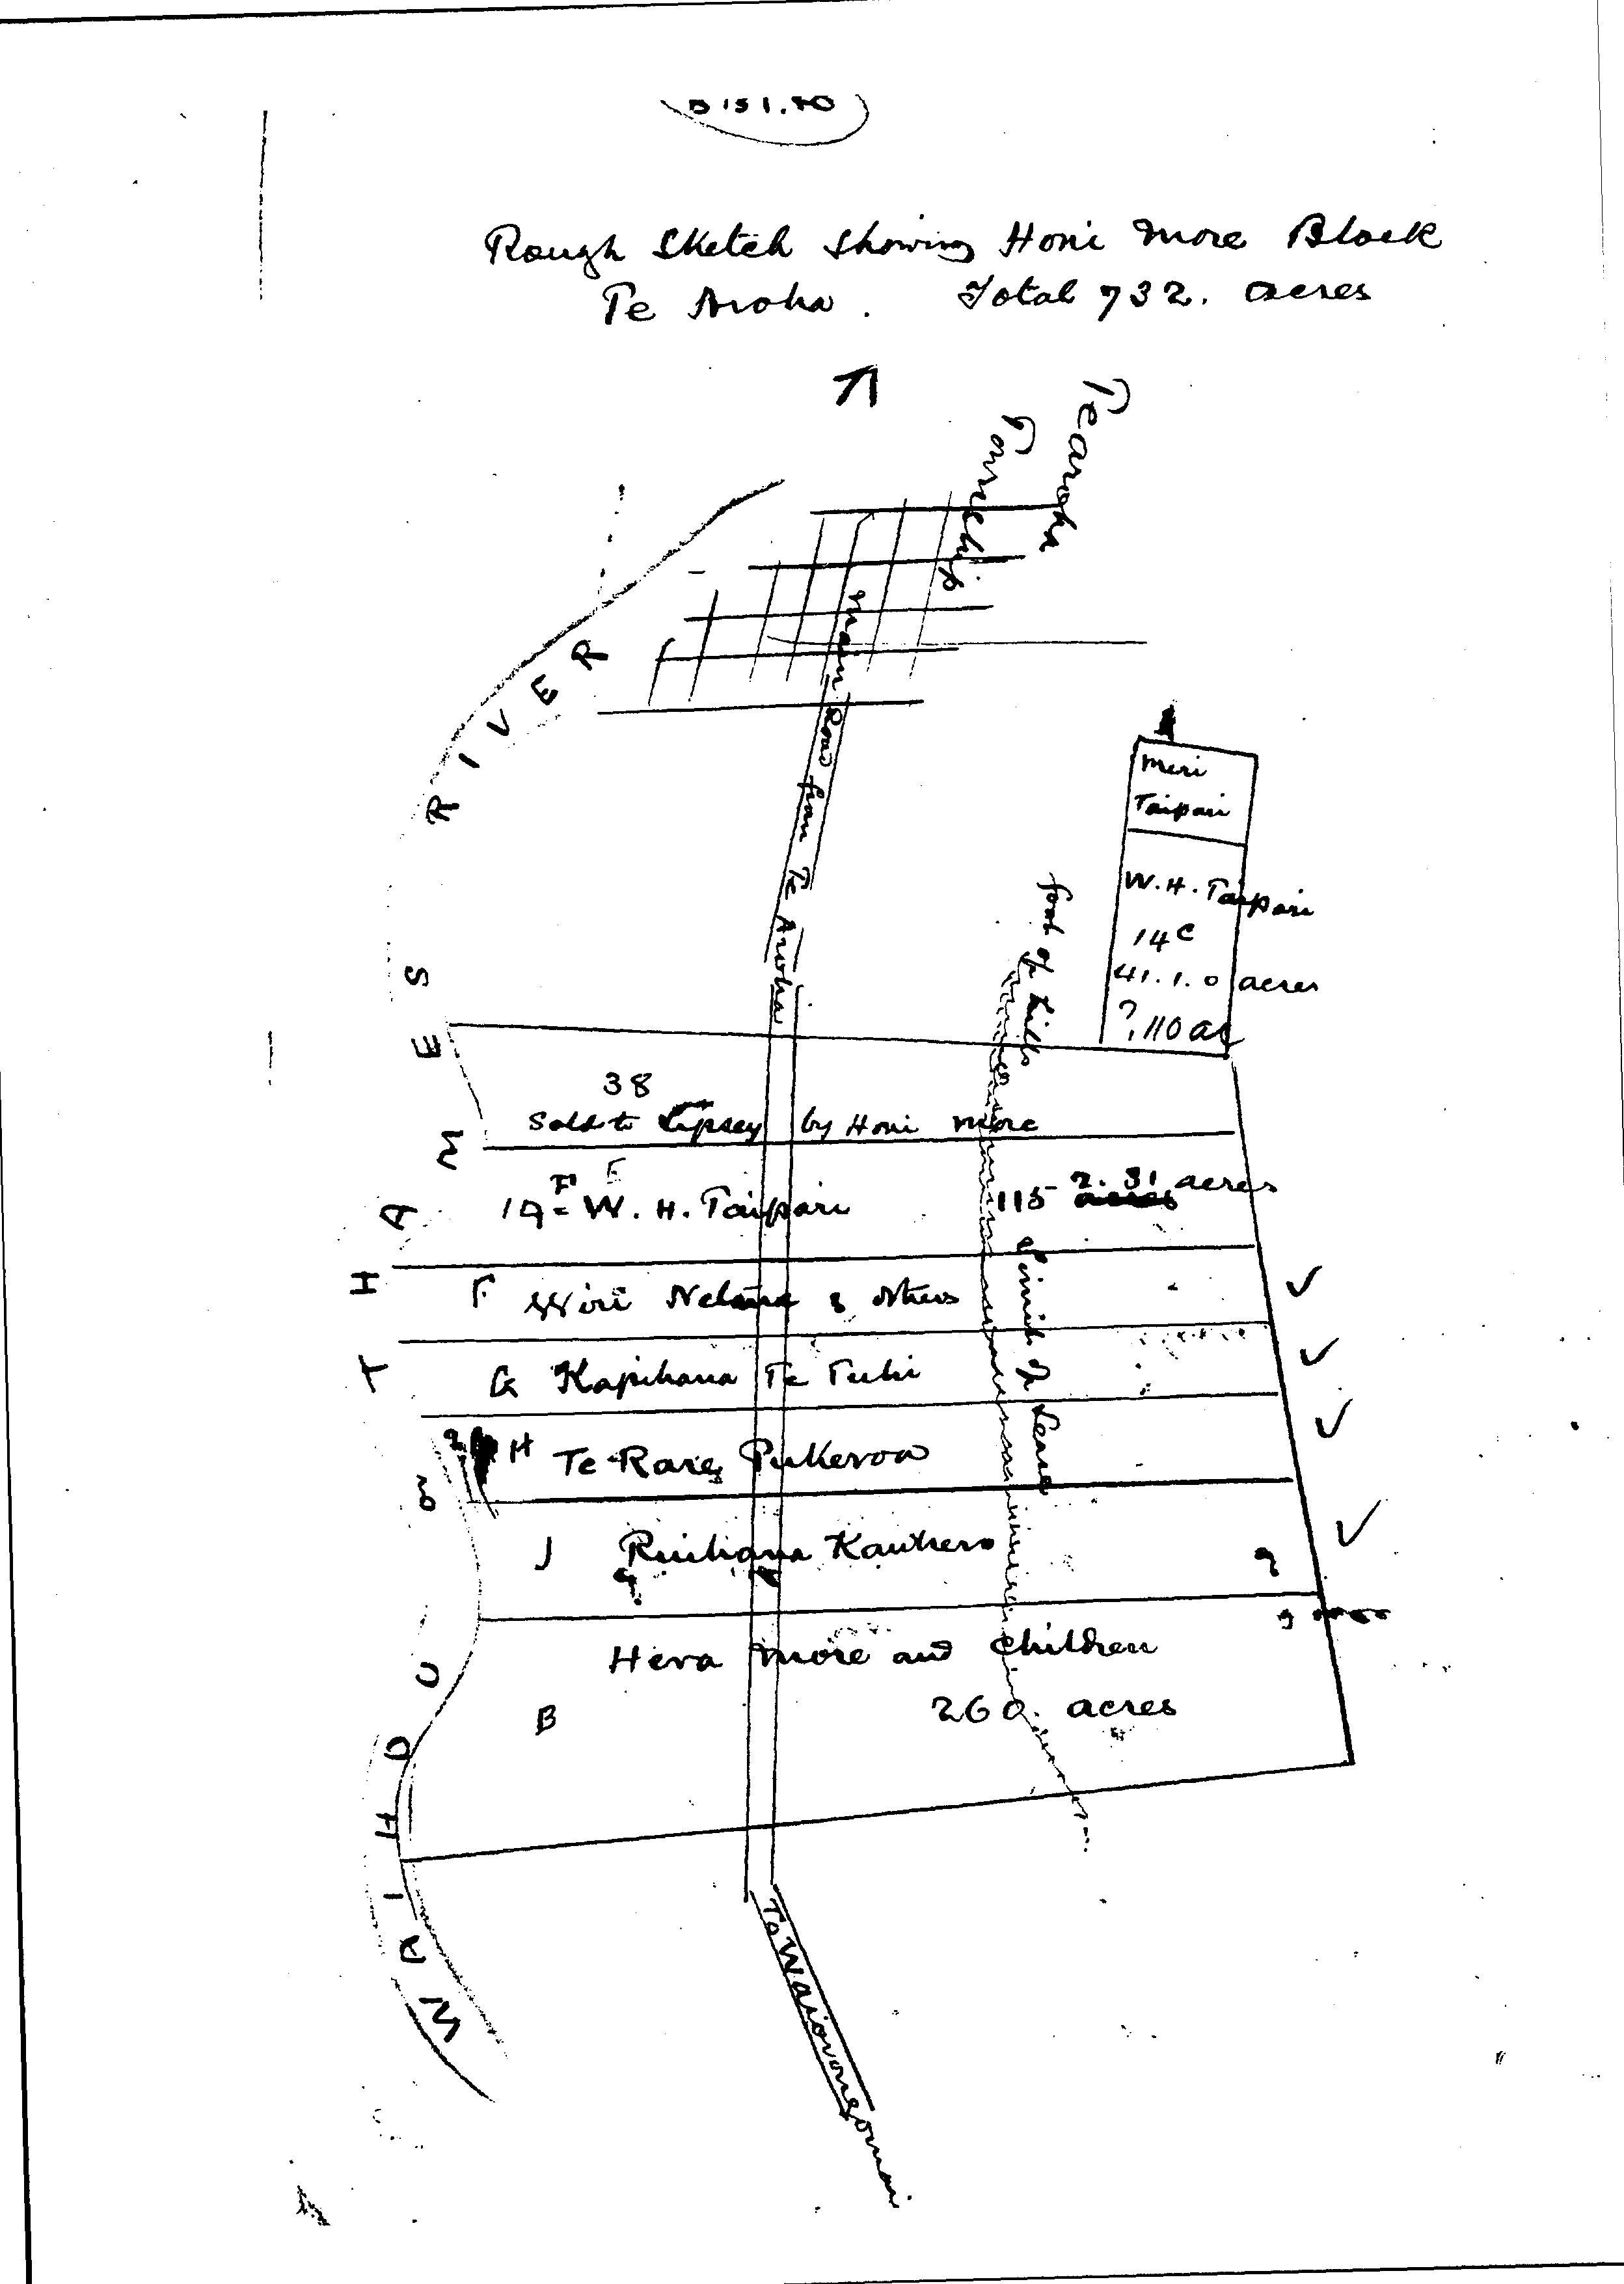 Rough Sketch showing Honi More Block
Te Aroha. Total 732. acres
Te aroha
Township
Main Road from Te Aroha
RIVER
THAMES
OR
WAIHOU
Meri
Taipari
W. H. Taipari
14 C
41. 1. 0 acres
? 110 ac
foot of hills
38
Sold to Lipsey by Honi More
F
W. H. Taipari 115 2. 31 acres
Limit of Lease
F Wiri Netana & others ✓
G Kapihana Te Tuhi ✓
H Te Rare Pukeroa ✓
J Ruihana Kawhero ✓
Hera More and children
B 260. acres
To Waiorongomai.